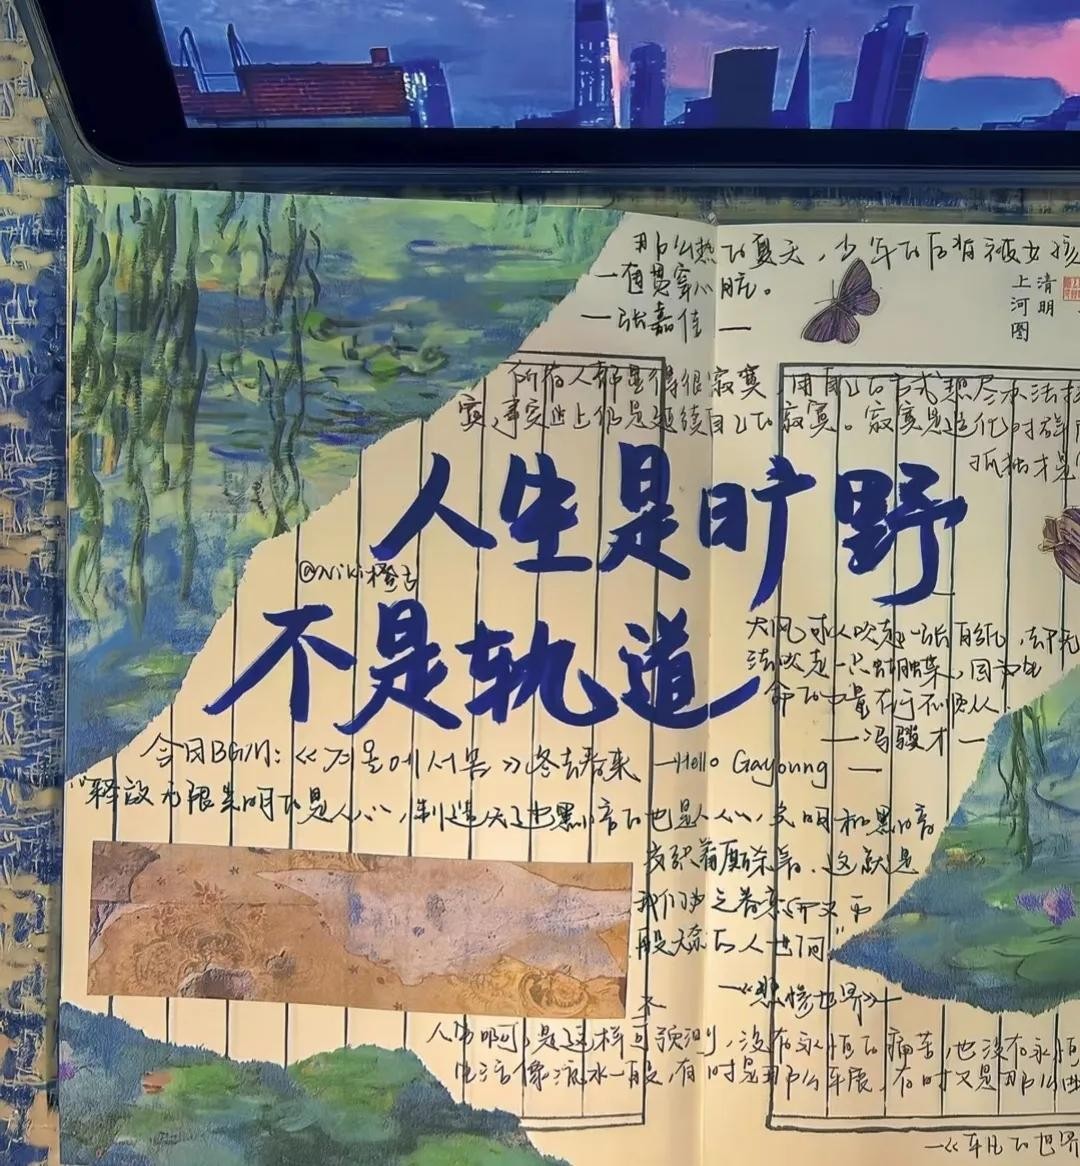 那么热的夏天，少年的后背被女孩
一直贯穿心脏。
—张嘉佳—
清明上河图
所有人都显得很寂寞，用自己的方式想尽办法排
寞，事实上仍是延续自己的寂寞。寂寞是造化对群
孤独才是
人生是旷野
@Niki橙子
不是轨道
大风可以吹起一张白纸，却无
法吹走一只蝴蝶，因为生
命的力量在于不顺从
—冯骥才—
今日BGM：《 》冬去春来—Hello Gayoung—
"释放无限光明的是人心，制造无边黑暗的也是人心，光明和黑暗
交织着厮杀着，这就是
我们为之眷恋而又万
般无奈的人世间"
—《悲惨世界》—
人生啊，是这样可预测，没有永恒的痛苦，也没有永恒
生活像流水一般，有时是那么平展，有时又是那么曲
—《平凡的世界